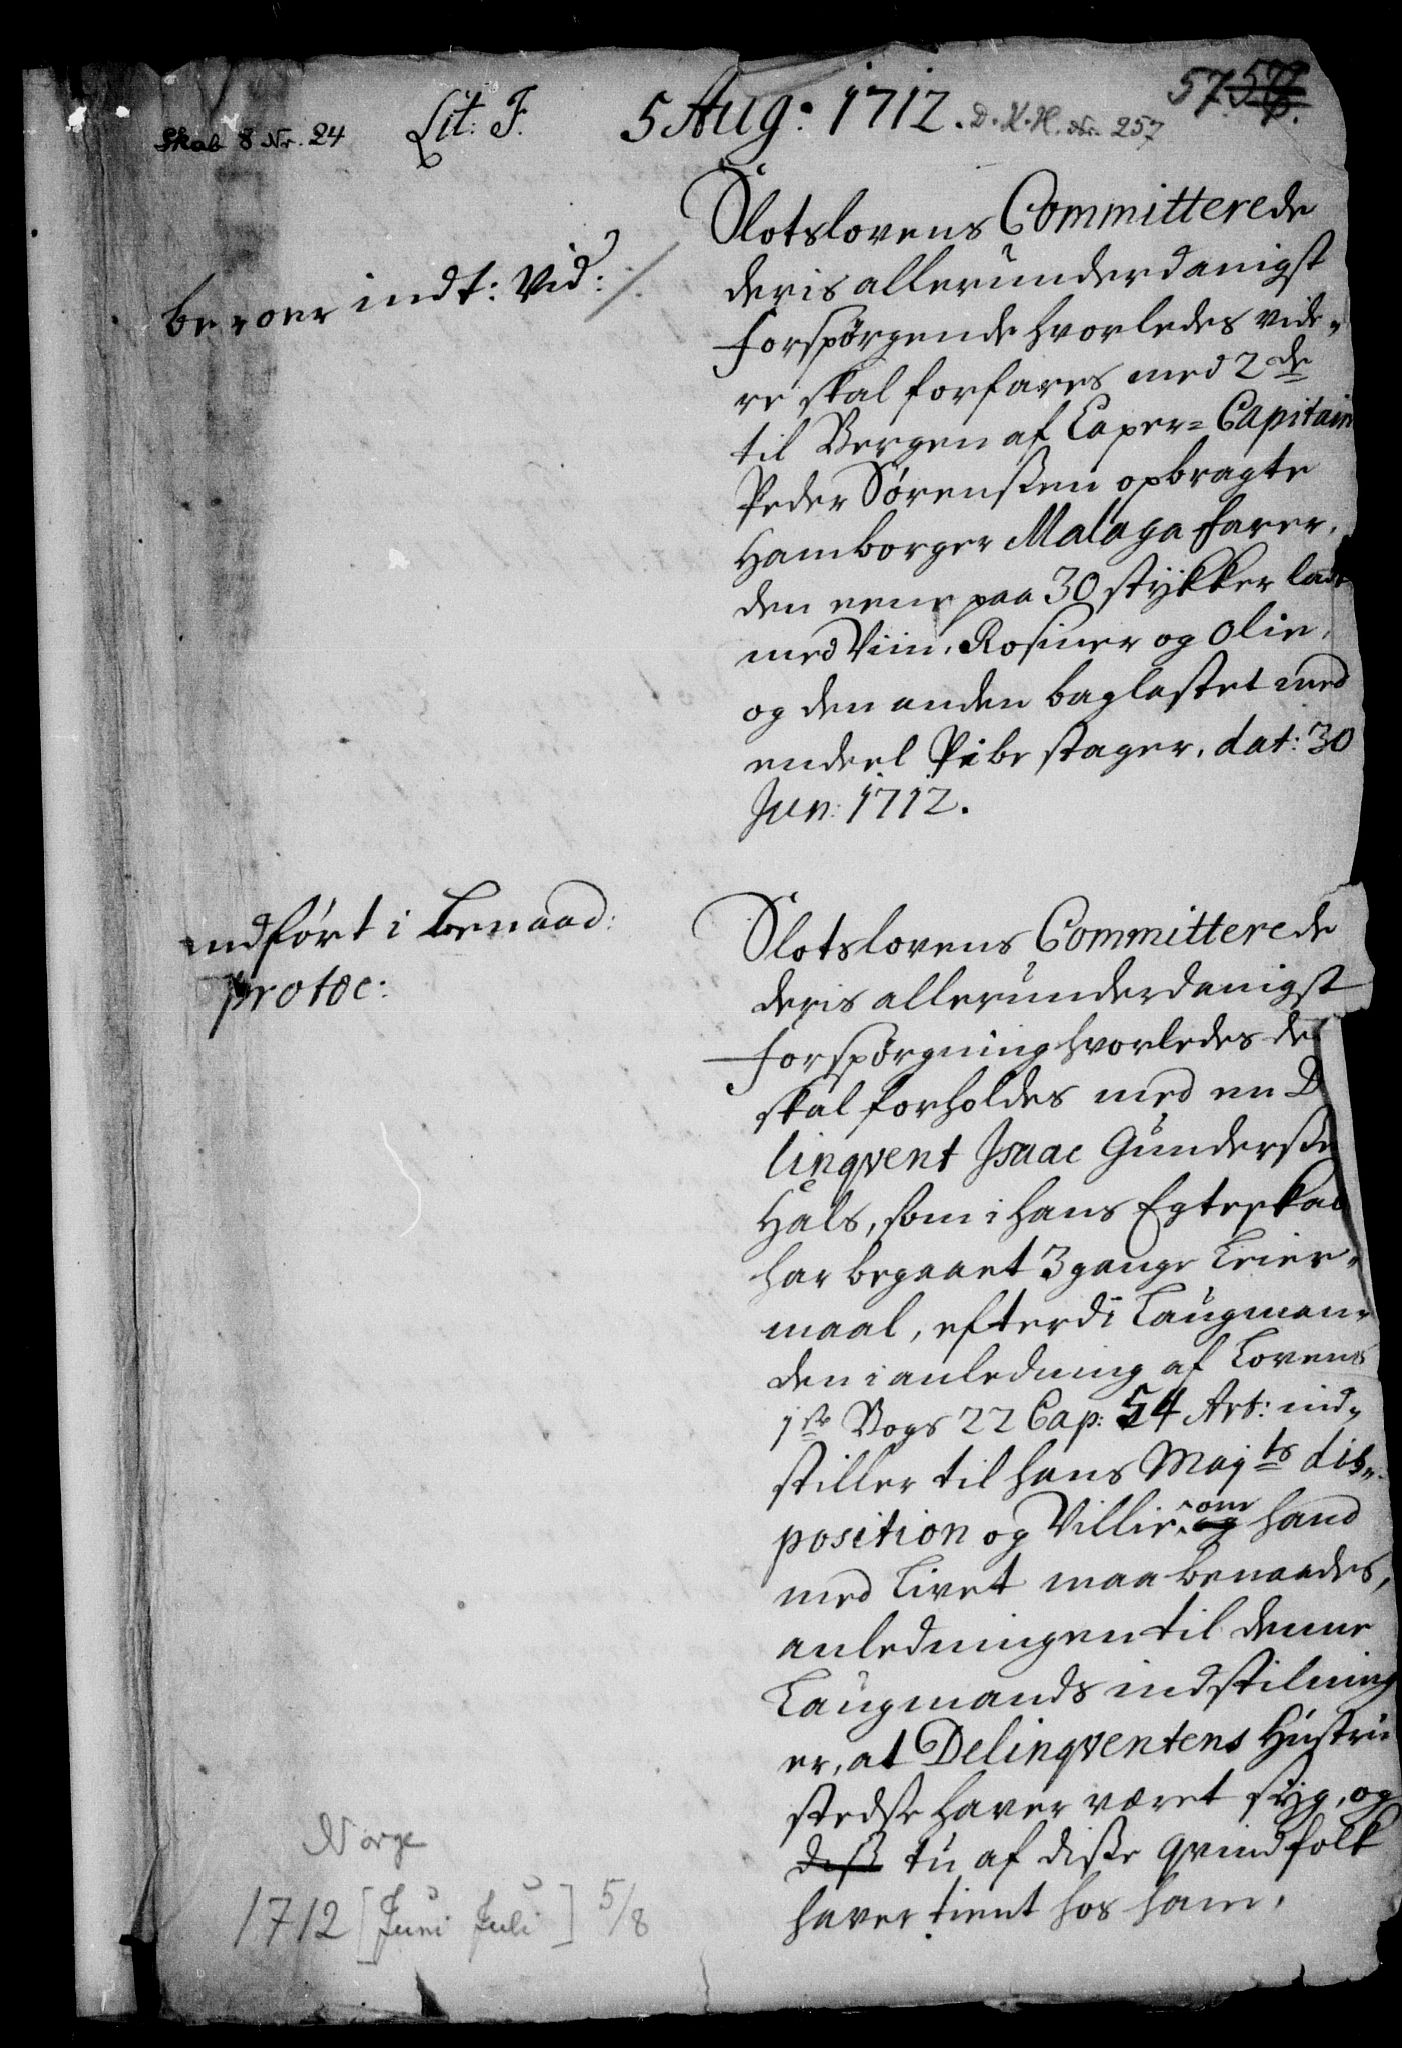 Skab 8 Nr. 24
Lit: F.
5 Aug: 1712.
D.K.H. Nr. 257
57.
beroer indt: Vid: ⁒
Slotslovens Committerede
deris allerunderdanigst
forspørgende hvorledes vide-
re skal forfares med 2de
til Bergen af Caper= Capitain
Peder Sørenssen opbragte
Hamborger Malaga farer,
den eene paa 30 stykker ladt
med Viin, Rosiner og Olie,
og den anden baglastet med
endeel Pibe stager, dat: 30
Jun: 1712.
indført i Benaad:
protoc:
Slotslovens Committerede
deris allerunderdanigst
forspørgning hvorledes de
skal forholdes med en D
linqvent Isaac Gunderssen
Hals, som i hans Egteskab
har begaaet 3 gange Leier-
maal, efterdi Laugman-
den i anledning af Lovens
1ste Bogs 22 Cap: 54 Art: ind-
stiller til hans Majts dis-
position og Villie, om hand
med Livet maa benaades,
anledningen til denne
Laugmands indstilning
er, at Delinqventens Hustru
stedse haver været syg, og
diss tu af disse qvindfolk
haver tient hos ham.
Norge
1712 [Juni Juli] 5/8